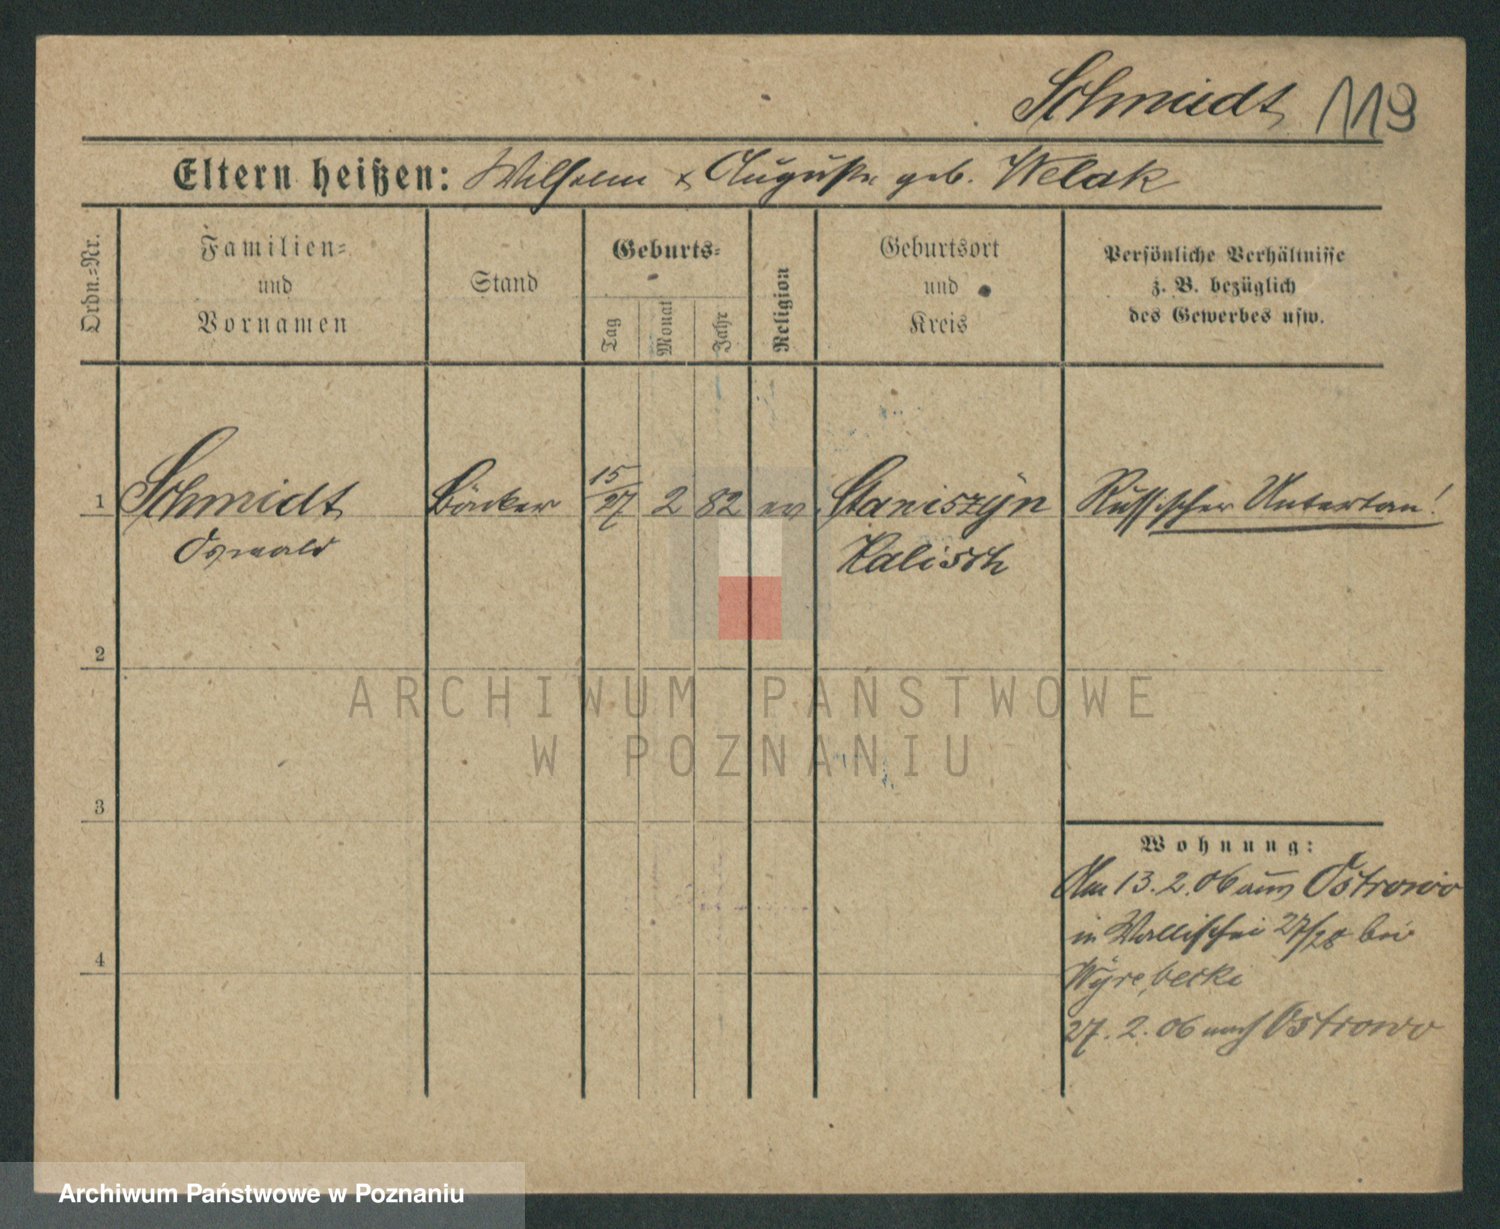 Schmidt 119
Eltern heißen: Wilhelm & Auguste geb. Welak
Ordn.=Nr.
Familien=
und
Vornamen
Stand
Geburts=
Tag
Monat
Jahr
Religion
Geburtsort
und
Kreis
Persönliche Verhältnisse
z. B. bezüglich
des Gewerbes usw.
1 Schmidt Bäcker 15/27 2 82 ev Staniszyn Russischer Untertan!
Oswald Kalisch
2
3
4
Wohnung:
Am 13.2.06 aus Ostrowo
in Wallischei 27/28 bei
Wyrebecki
27.2.06 nach Ostrowo
ARCHIWUM PAŃSTWOWE
W POZNANIU
Archiwum Państwowe w Poznaniu